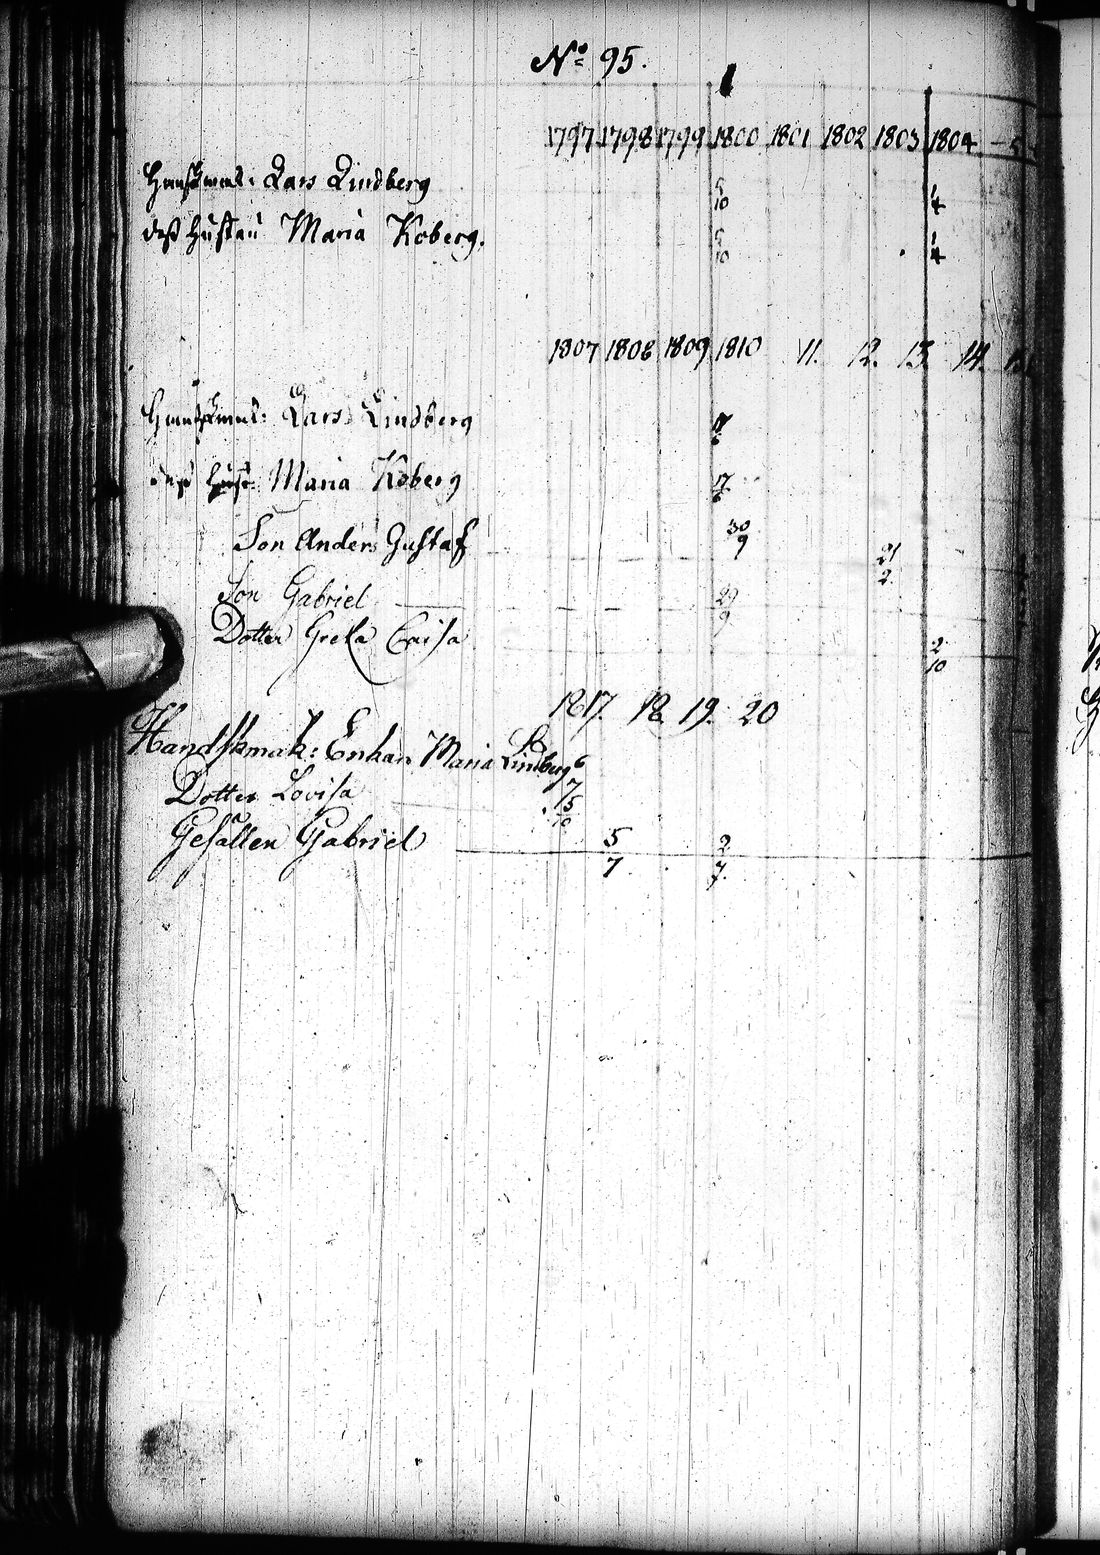 No 95.
1797 1798 1799 1800 1801 1802 1803 1804 - 5
Handskmak: Lars Lindberg 5/10 1/4
dess hustru Maria Koberg. 5/10 1/4
1807 1808 1809 1810 11. 12. 13. 14.
Handskmak: Lars Lindberg 17/6
dess hust: Maria Koberg 17/6
Son Anders Gustaf 30/9 21/2
Son Gabriel 29/9
Dotter Greta Caisa 2/10
1817. 18. 19. 20
Handskmak: Enkan Maria Lindberg 6/7
Dotter Lovisa 15/10
Gesällen Gabriel 5/7 2/7.